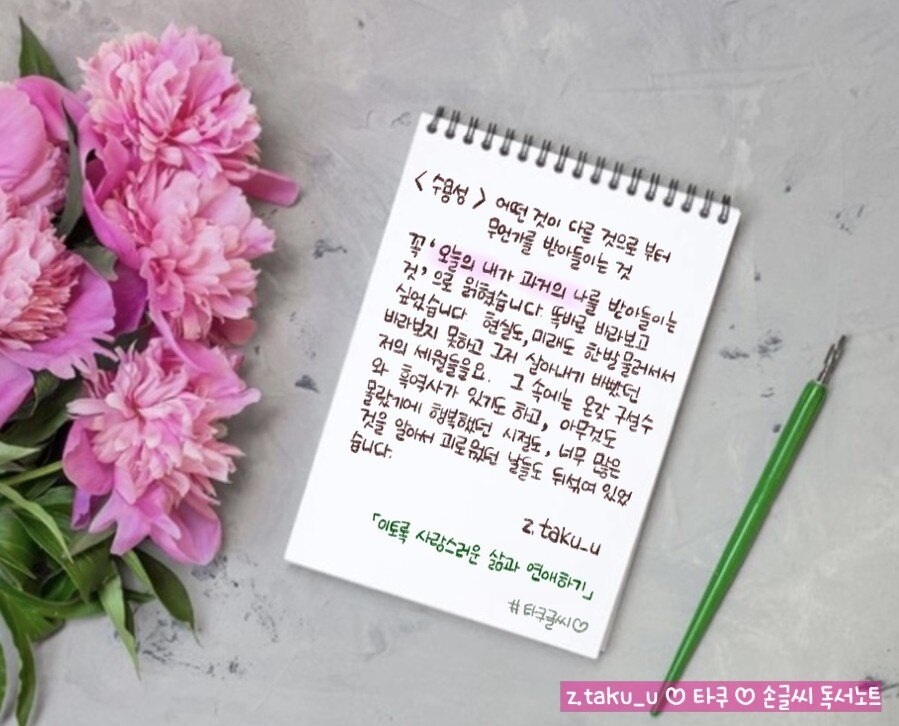 <수용성> 어떤 것이 다를 것으로 부터
무언가를 받아들이는 것
꼭 '오늘의 내가 과거의 나를 받아들이는
것'으로 읽혔습니다. 똑바로 바라보고
싶었습니다. 현실도, 미래도 한발 물러서서
바라보지 못하고 그저 살아내기 바빴던
저의 세월들을요. 그 속에는 온갖 구설수
와 흑역사가 있기도 하고, 아무것도
몰랐기에 행복했던 시절도, 너무 많은
것을 알아서 괴로웠던 날들도 뒤섞여 있었
습니다.
z.taku_u
「이토록 사랑스러운 삶과 연애하기」
#타쿠글씨♡
z.taku_u ♡ 타쿠 ♡ 손글씨 독서노트